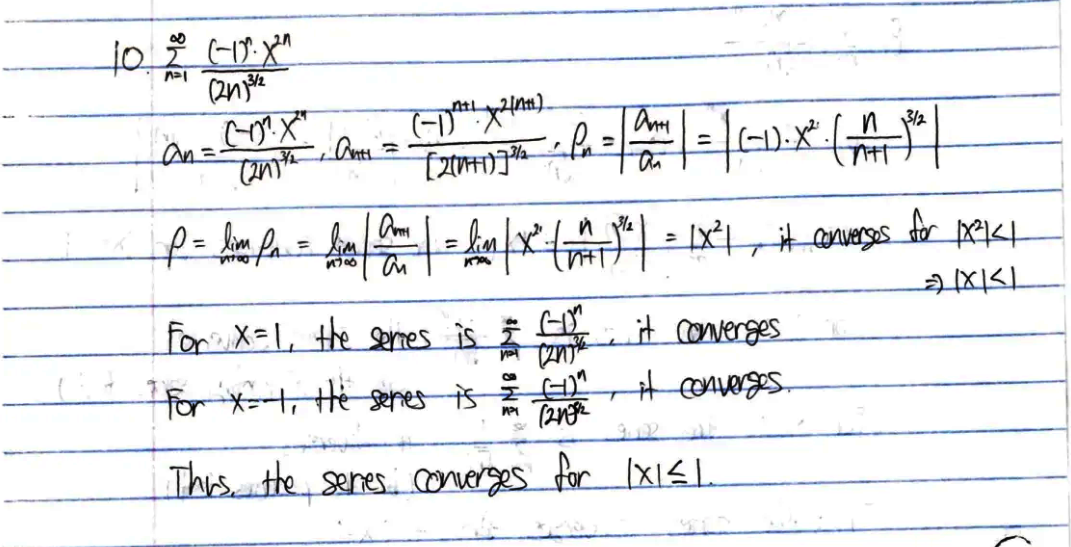 10. $\sum_{n=1}^{\infty} \frac{(-1)^n \cdot x^{2n}}{(2n)^{3/2}}$
$a_n = \frac{(-1)^n \cdot x^{2n}}{(2n)^{3/2}}, a_{n+1} = \frac{(-1)^{n+1} \cdot x^{2(n+1)}}{[2(n+1)]^{3/2}}, \rho_n = \left|\frac{a_{n+1}}{a_n}\right| = \left|(-1) \cdot x^2 \cdot \left(\frac{n}{n+1}\right)^{3/2}\right|$
$\rho = \lim_{n\to\infty} \rho_n = \lim_{n\to\infty} \left|\frac{a_{n+1}}{a_n}\right| = \lim_{n\to\infty} \left|x^2 \cdot \left(\frac{n}{n+1}\right)^{3/2}\right| = |x^2|$, it converges for $|x^2|<1$
$\Rightarrow |x|<1$
For $x=1$, the series is $\sum_{n=1}^{\infty} \frac{(-1)^n}{(2n)^{3/2}}$, it converges
For $x=-1$, the series is $\sum_{n=1}^{\infty} \frac{(-1)^n}{(2n)^{3/2}}$, it converges.
Thus, the series converges for $|x| \leq 1$.